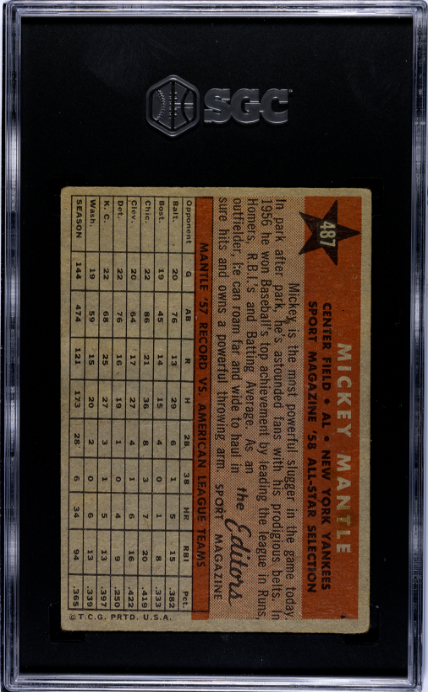 SGC
487
MICKEY MANTLE
CENTER FIELD • AL • NEW YORK YANKEES
SPORT MAGAZINE '58 ALL-STAR SELECTION
Mickey is the most powerful slugger in the game today.
In park after park, he's astounded fans with his prodigious belts. In
1956 he won Baseball's top achievement by leading the league in Runs,
Homers, R.B.I.'s and Batting Average. As an
outfielder, he can roam far and wide to haul in
sure hits and owns a powerful throwing arm.
the Editors
SPORT MAGAZINE
MANTLE '57 RECORD VS. AMERICAN LEAGUE TEAMS
Opponent G AB R H 2B 3B HR RBI Pct.
Balt. 20 76 13 29 6 1 5 15 .382
Bost. 19 45 14 15 4 0 1 8 .333
Chic. 22 86 21 36 8 3 7 20 .419
Clev. 20 64 17 27 4 1 6 16 .422
Det. 22 76 16 19 1 0 4 9 .250
K. C. 22 68 25 27 3 1 5 13 .397
Wash. 19 59 15 20 2 0 6 13 .339
SEASON 144 474 121 173 28 6 34 94 .365
©T.C.G. PRTD. U.S.A.